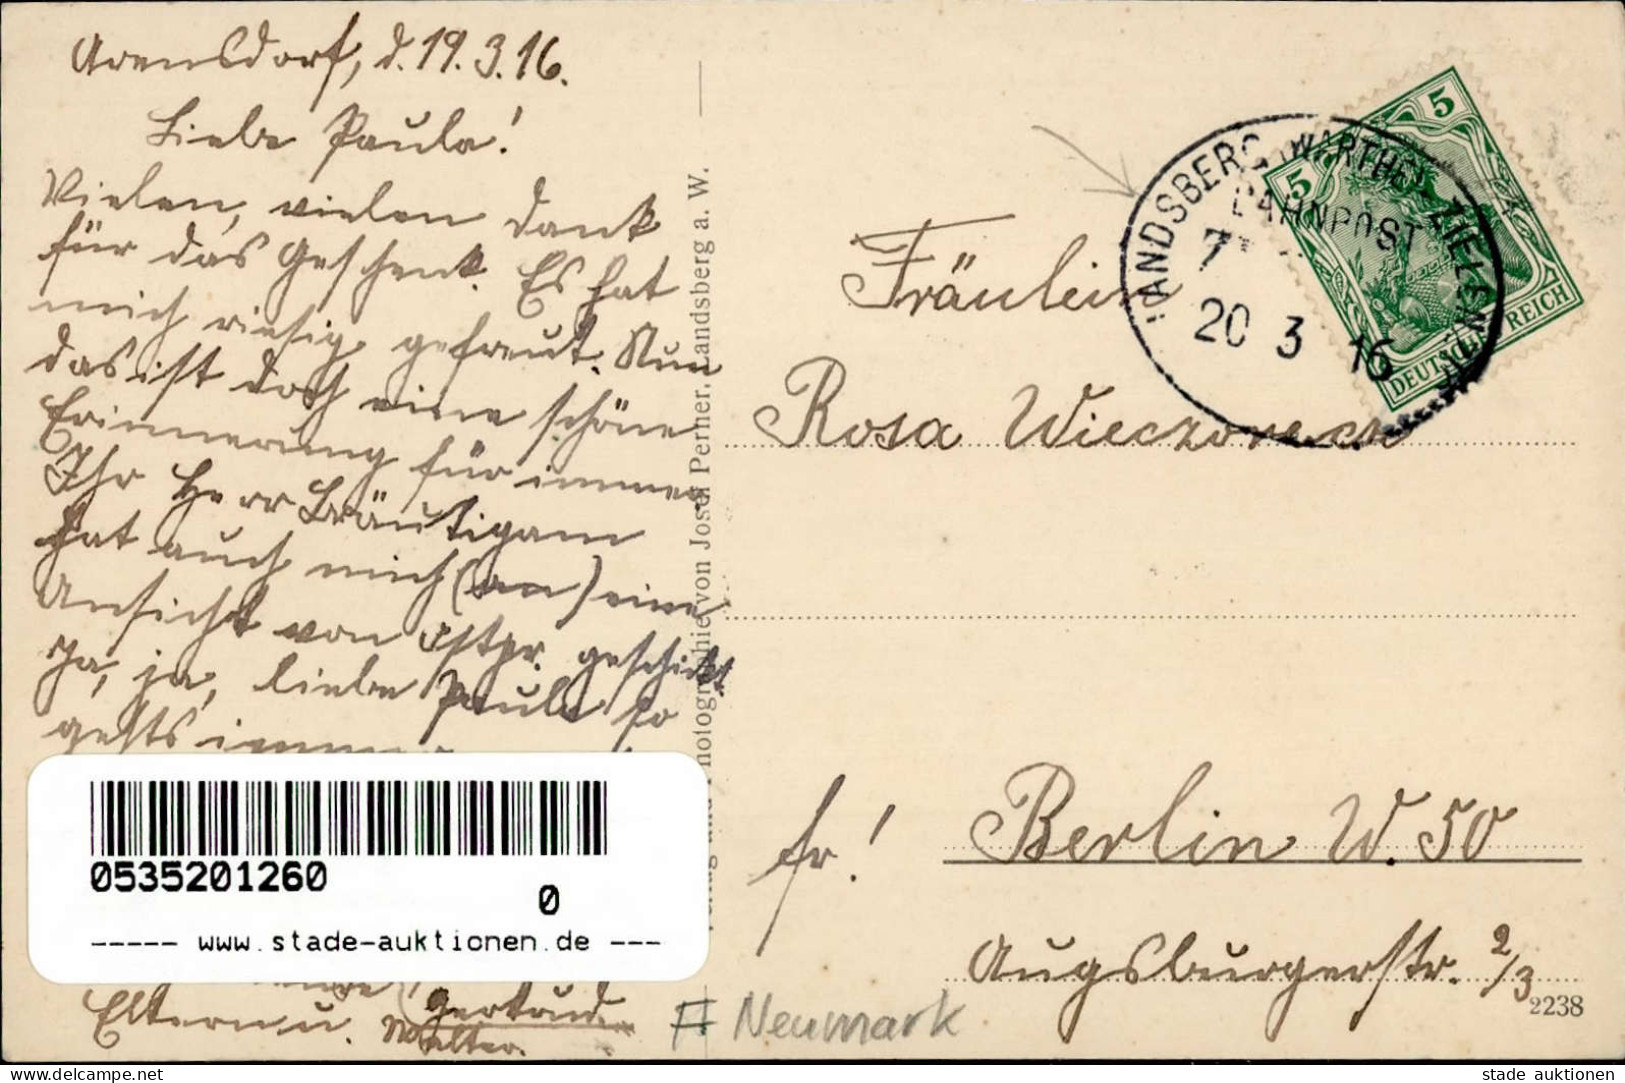 Arensdorf, d. 19. 3. 16.
Liebe Paula!
Vielen, vielen Dank
für das Geschenk. Es hat
mich riesig gefreut. Nun
das ist doch eine schöne
Erinnerung für immer
Ihr Herr Bräutigam
hat auch mich (an) eine
Ansicht von Ostpr. geschickt
Ja, ja, liebe Paula so
gehts immer
Eltern u. Walter.
Gertrud
0535201260
0
----- www.stade-auktionen.de ---
Photographie von Josef Perner, Landsberg a. W.
LANDSBERG (WARTHE) ZIELENZIG
BAHNPOST
20 3 16
5
5
DEUTSCHES REICH
Fräulein
Rosa Wieczoreck
fr!
Berlin W. 50
Augsburgerstr. 2/3
2238
Neumark
www.delcampe.net
stade auktionen